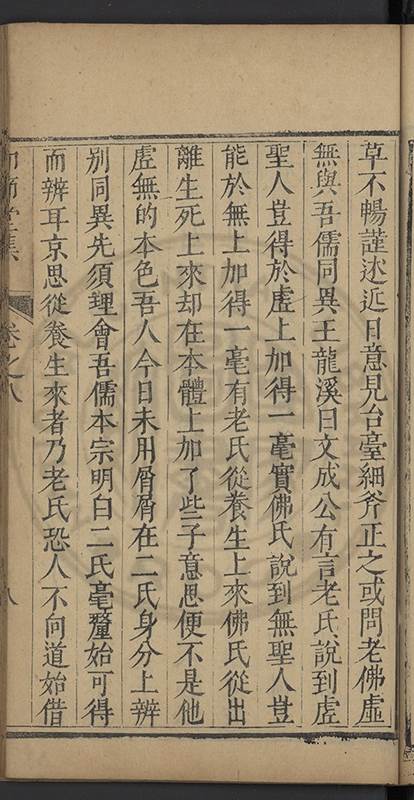 草不暢謹述近日意見台臺細斧正之或問老佛虛
無與吾儒同異王龍溪曰文成公有言老氏說到虛
聖人豈得於虛上加得一毫實佛氏說到無聖人豈
能於無上加得一毫有老氏從養生上來佛氏從出
離生死上來却在本體上加了些子意思便不是他
虛無的本色吾人今日未用屑屑在二氏身分上辨
別同異先須理會吾儒本宗明白二氏毫釐始可得
而辨耳京思從養生來者乃老氏恐人不向道始借
集 卷之八 八